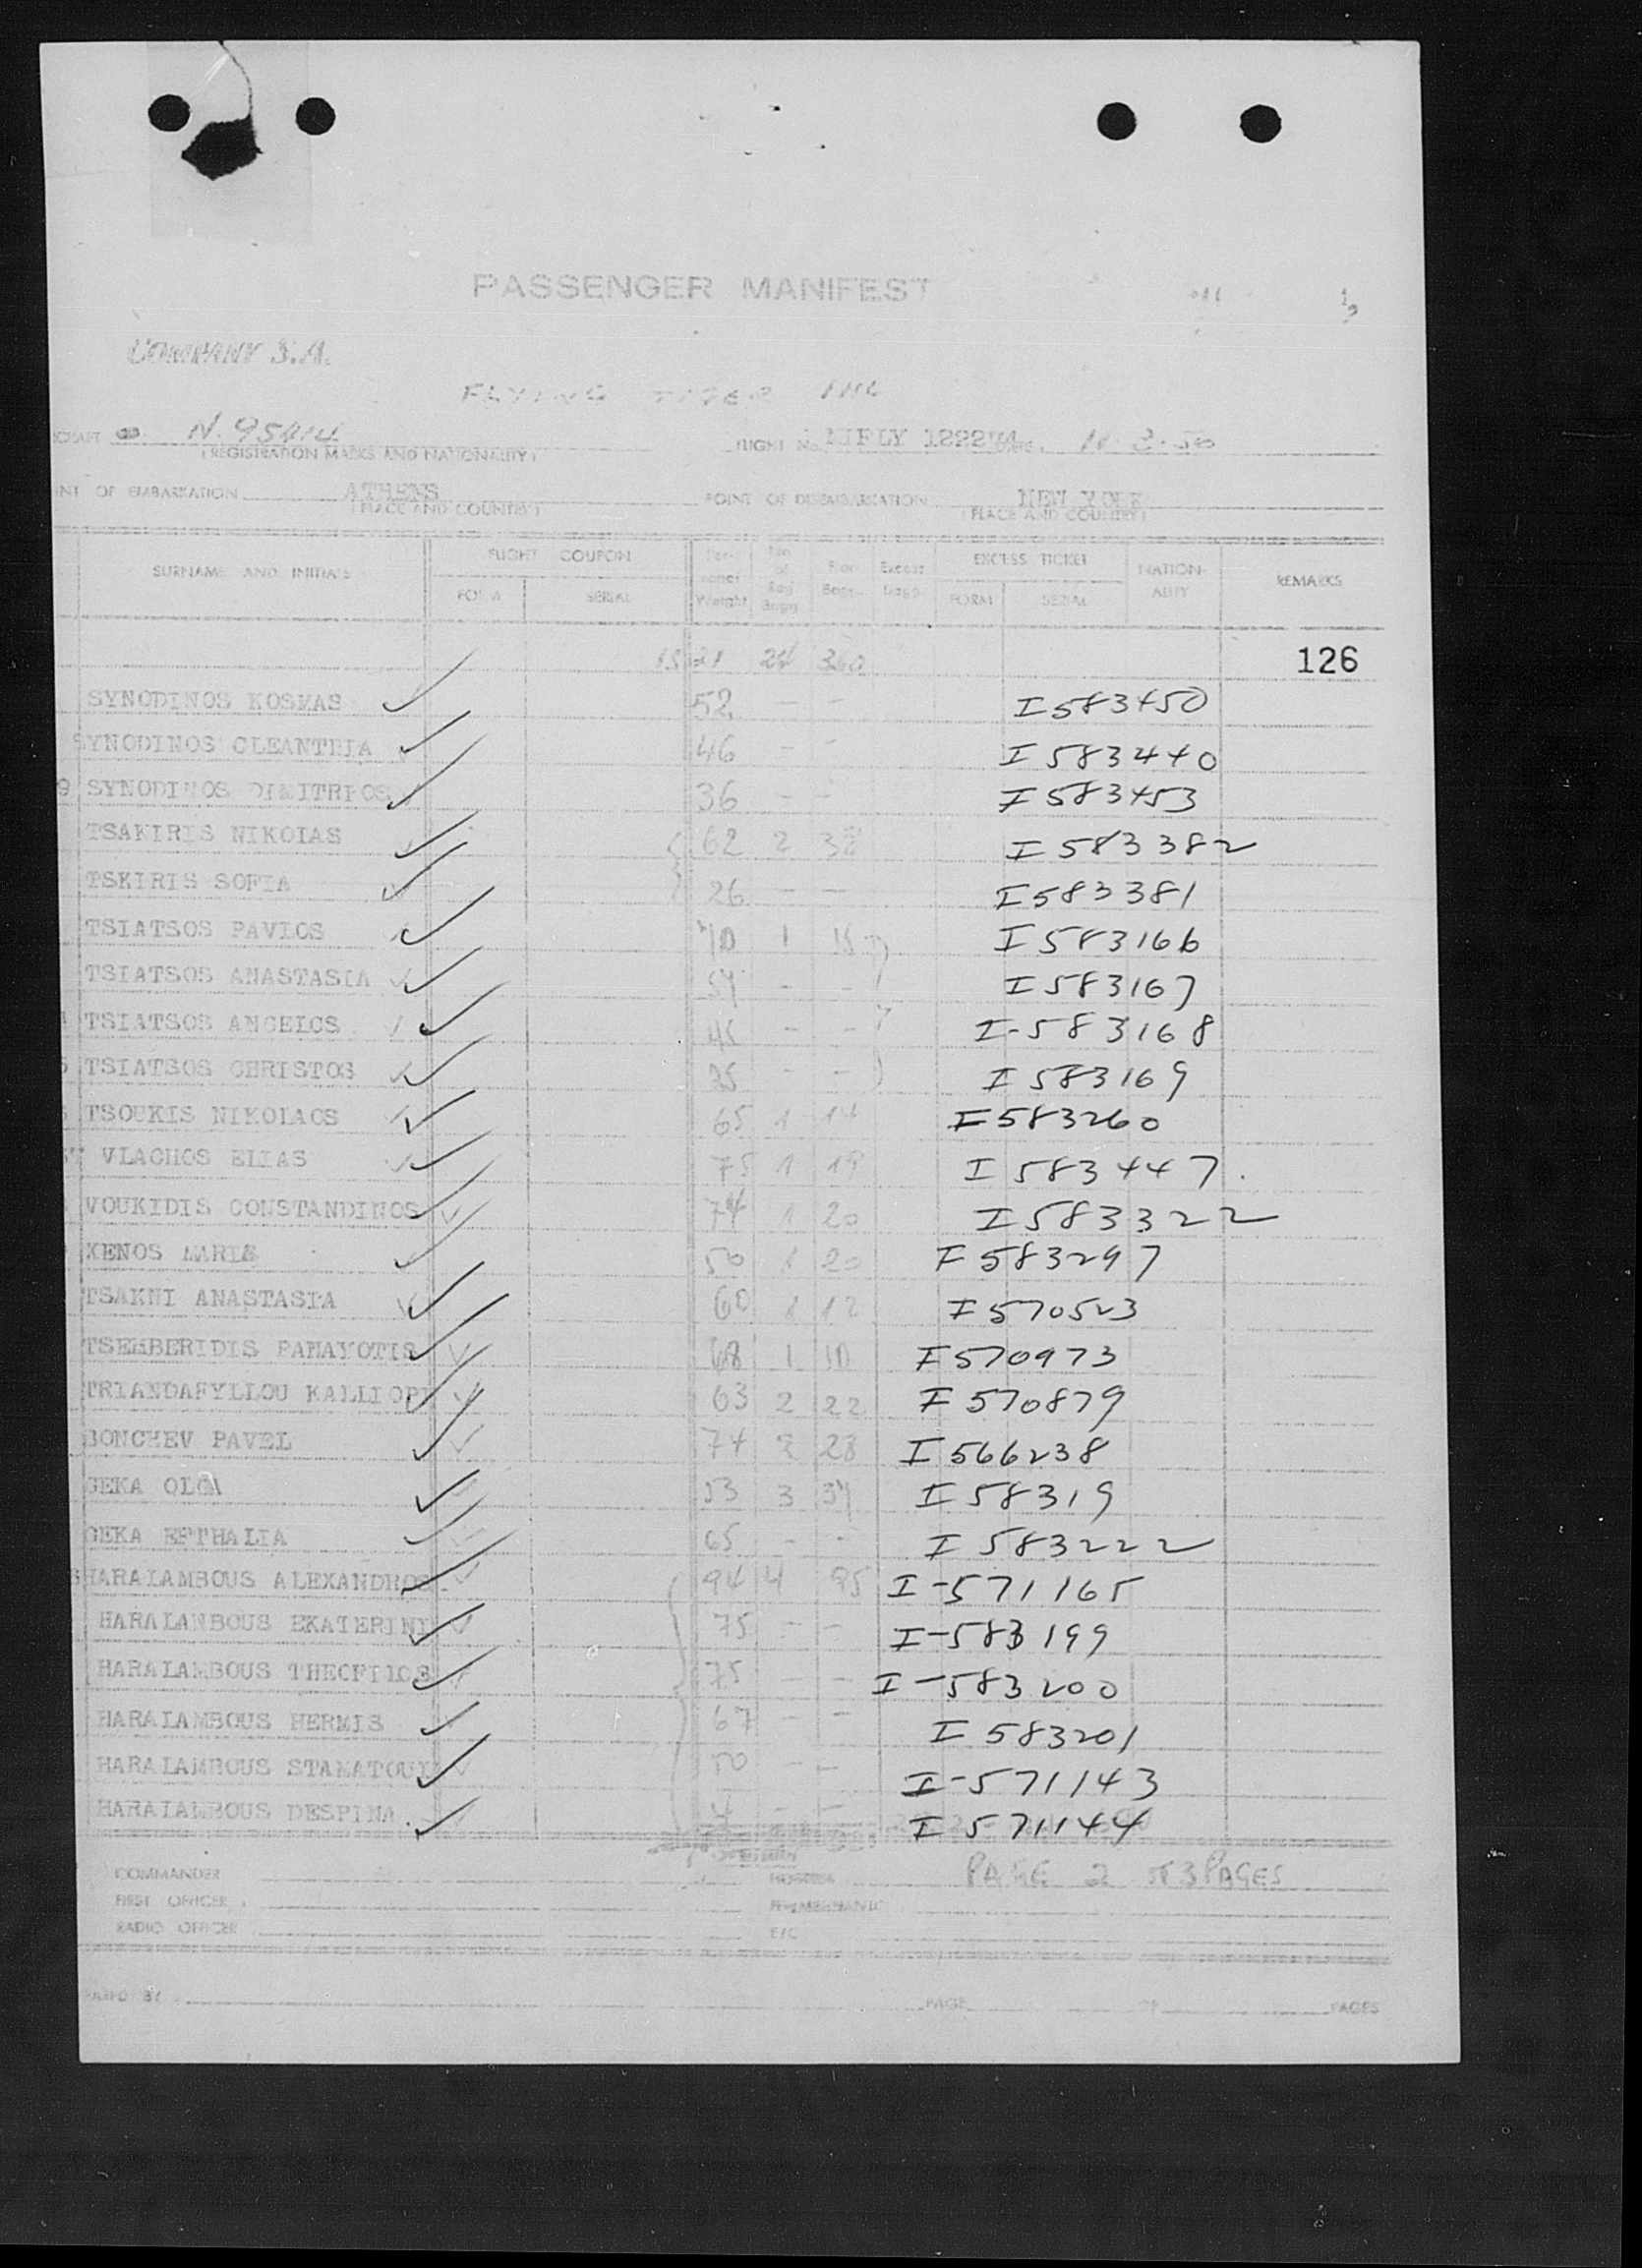 PASSENGER MANIFEST
COMPANY S.A.
FLYING TIGER INC
N. 9541
(REGISTRATION MARKS AND NATIONALITY)
FLIGHT No. MIFLY 1222 11-3-56
OF EMBARKATION ATHENS POINT OF DISEMBARKATION NEW YORK
(PLACE AND COUNTRY) (PLACE AND COUNTRY)
SURNAME AND INITIALS FLIGHT COUPON FORM SERIAL Weight No. of Reg Bagg. Bagg. Excess Bagg. EXCESS TICKET FORM SERIAL NATION-ALITY REMARKS
1521 24 360 126
SYNODINOS KOSMAS 52 - - I 583450
SYNODINOS CLEANTHIA 46 - - I 583440
9 SYNODINOS DIMITRIOS 36 - - I 583453
TSAKIRIS NIKOLAS 62 2 38 I 583382
TSKIRIS SOFIA 26 - - I 583381
TSIATSOS PAVLOS 70 1 15 I 583166
TSIATSOS ANASTASIA 54 - - I 583167
TSIATSOS ANGELOS 45 - - I-583168
TSIATSOS CHRISTOS 35 - - I 583169
TSOUKIS NIKOLAOS 65 1 14 I 583260
VLACHOS ELIAS 75 1 19 I 583447
VOUKIDIS CONSTANDINOS 74 1 20 I 583322
XENOS MARIA 50 1 20 I 583297
TSAKNI ANASTASIA 60 1 12 I 570523
TSEMBERIDIS PANAYOTIS 68 1 10 I 570973
TRIANDAFYLLOU KALLIOPI 63 2 22 I 570879
BONCHEV PAVEL 74 2 28 I 566238
GEKA OLGA 53 3 34 I 58319
GEKA EFTHALIA 65 - - I 583222
HARALAMBOUS ALEXANDROS 94 4 95 I-571165
HARALAMBOUS EKATERINI 75 - - I-583199
HARALAMBOUS THEOFILOS 75 - - I-583200
HARALAMBOUS HERMIS 67 - - I 583201
HARALAMBOUS STAMATOULA 50 - - I-571143
HARALAMBOUS DESPINA - - I 571144
COMMANDER HOSTESS PAGE 2 OF 3 PAGES
FIRST OFFICER
RADIO OFFICER F/C
BY PAGE OF PAGES